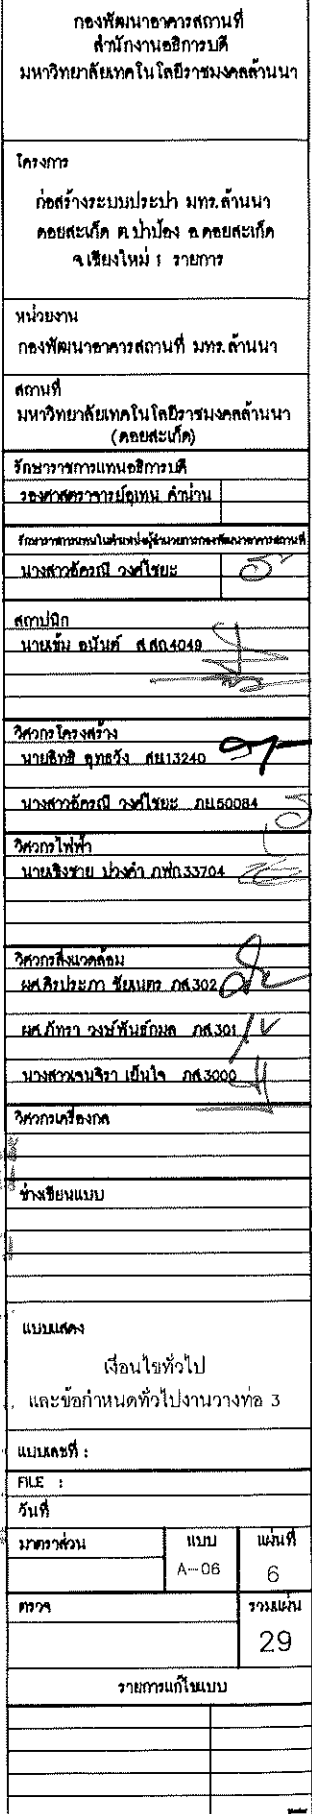 กองพัฒนาอาคารสถานที่
สำนักงานอธิการบดี
มหาวิทยาลัยเทคโนโลยีราชมงคลล้านนา
โครงการ
ก่อสร้างระบบประปา มทร.ล้านนา
ดอยสะเก็ด ต.ป่าป้อง อ.ดอยสะเก็ด
จ.เชียงใหม่ 1 รายการ
หน่วยงาน
กองพัฒนาอาคารสถานที่ มทร.ล้านนา
สถานที่
มหาวิทยาลัยเทคโนโลยีราชมงคลล้านนา
(ดอยสะเก็ด)
รักษาราชการแทนอธิการบดี
รองศาสตราจารย์อุเทน คำน่าน
รักษาราชการแทนในตำแหน่งผู้อำนวยการกองพัฒนาอาคารสถานที่
นางสาวอัครณี วงค์ไชยะ
สถาปนิก
นายเข้ม อนันต์ ส.สถ.4049
วิศวกรโครงสร้าง
นายอิทธิ อุทธวัง สย13240
นางสาวอัครณี วงค์ไชยะ ภย50084
วิศวกรไฟฟ้า
นายเชิงชาย ปวงคำ ภฟก.33704
วิศวกรสิ่งแวดล้อม
ผศ.ศิรประภา ชัยเนตร ภส.302
ผศ.ภัทรา วงษ์พันธ์กมล ภส.301
นางสาวเจนจิรา เย็นใจ ภส.3000
วิศวกรเครื่องกล
ช่างเขียนแบบ
แบบแสดง
เงื่อนไขทั่วไป
และข้อกำหนดทั่วไปงานวางท่อ 3
แบบเลขที่ :
FILE :
วันที่
มาตราส่วน แบบ แผ่นที่
A-06 6
ตรวจ รวมแผ่น
29
รายการแก้ไขแบบ